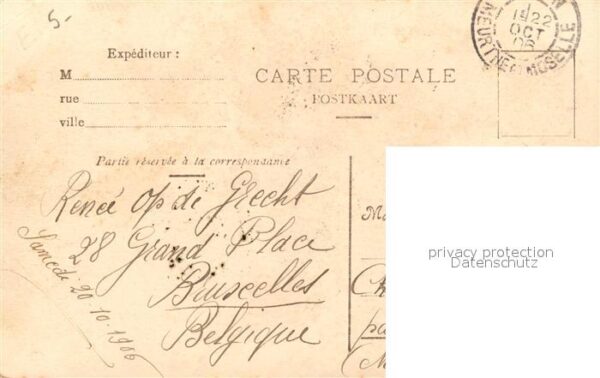 5-
22
OCT
06
MEURTHE ET MOSELLE
Expéditeur :
M
rue
ville
CARTE POSTALE
POSTKAART
Partie réservée à la correspondance
Renée Op de Grecht
28 Grand Place
Bruxelles
Belgique
Samedi 20 10-1906
privacy protection
Datenschutz